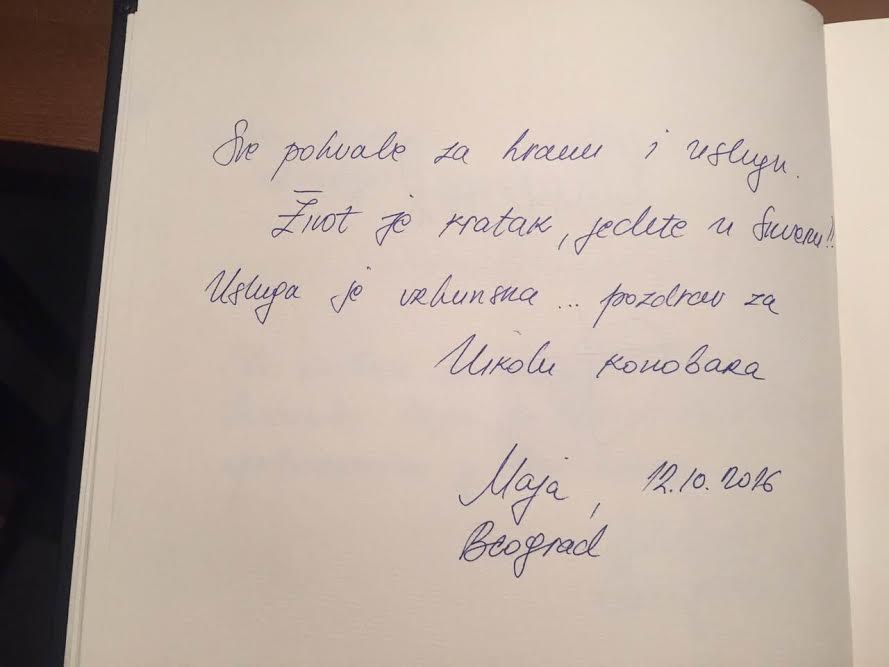 Sve pohvale za hranu i uslugu.
Život je kratak, jedite u Skveru!!
Usluga je vrhunska ... pozdrav za
Nikolu konobara
Maja, 12.10.2016
Beograd